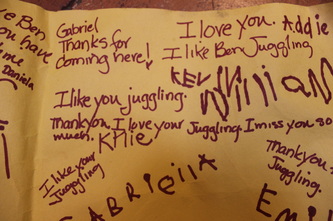 ike Ben
ou have
me
Daniela
Gabriel
Thanks for
coming here!
I love you. Addie
I like Ben Juggling
KEV
I like you juggling.
Thank you. I love your Juggling. I miss you so
much.
Kalie
I like your
Juggling
GABRieiiA
Thank you
Juggling.
Emi